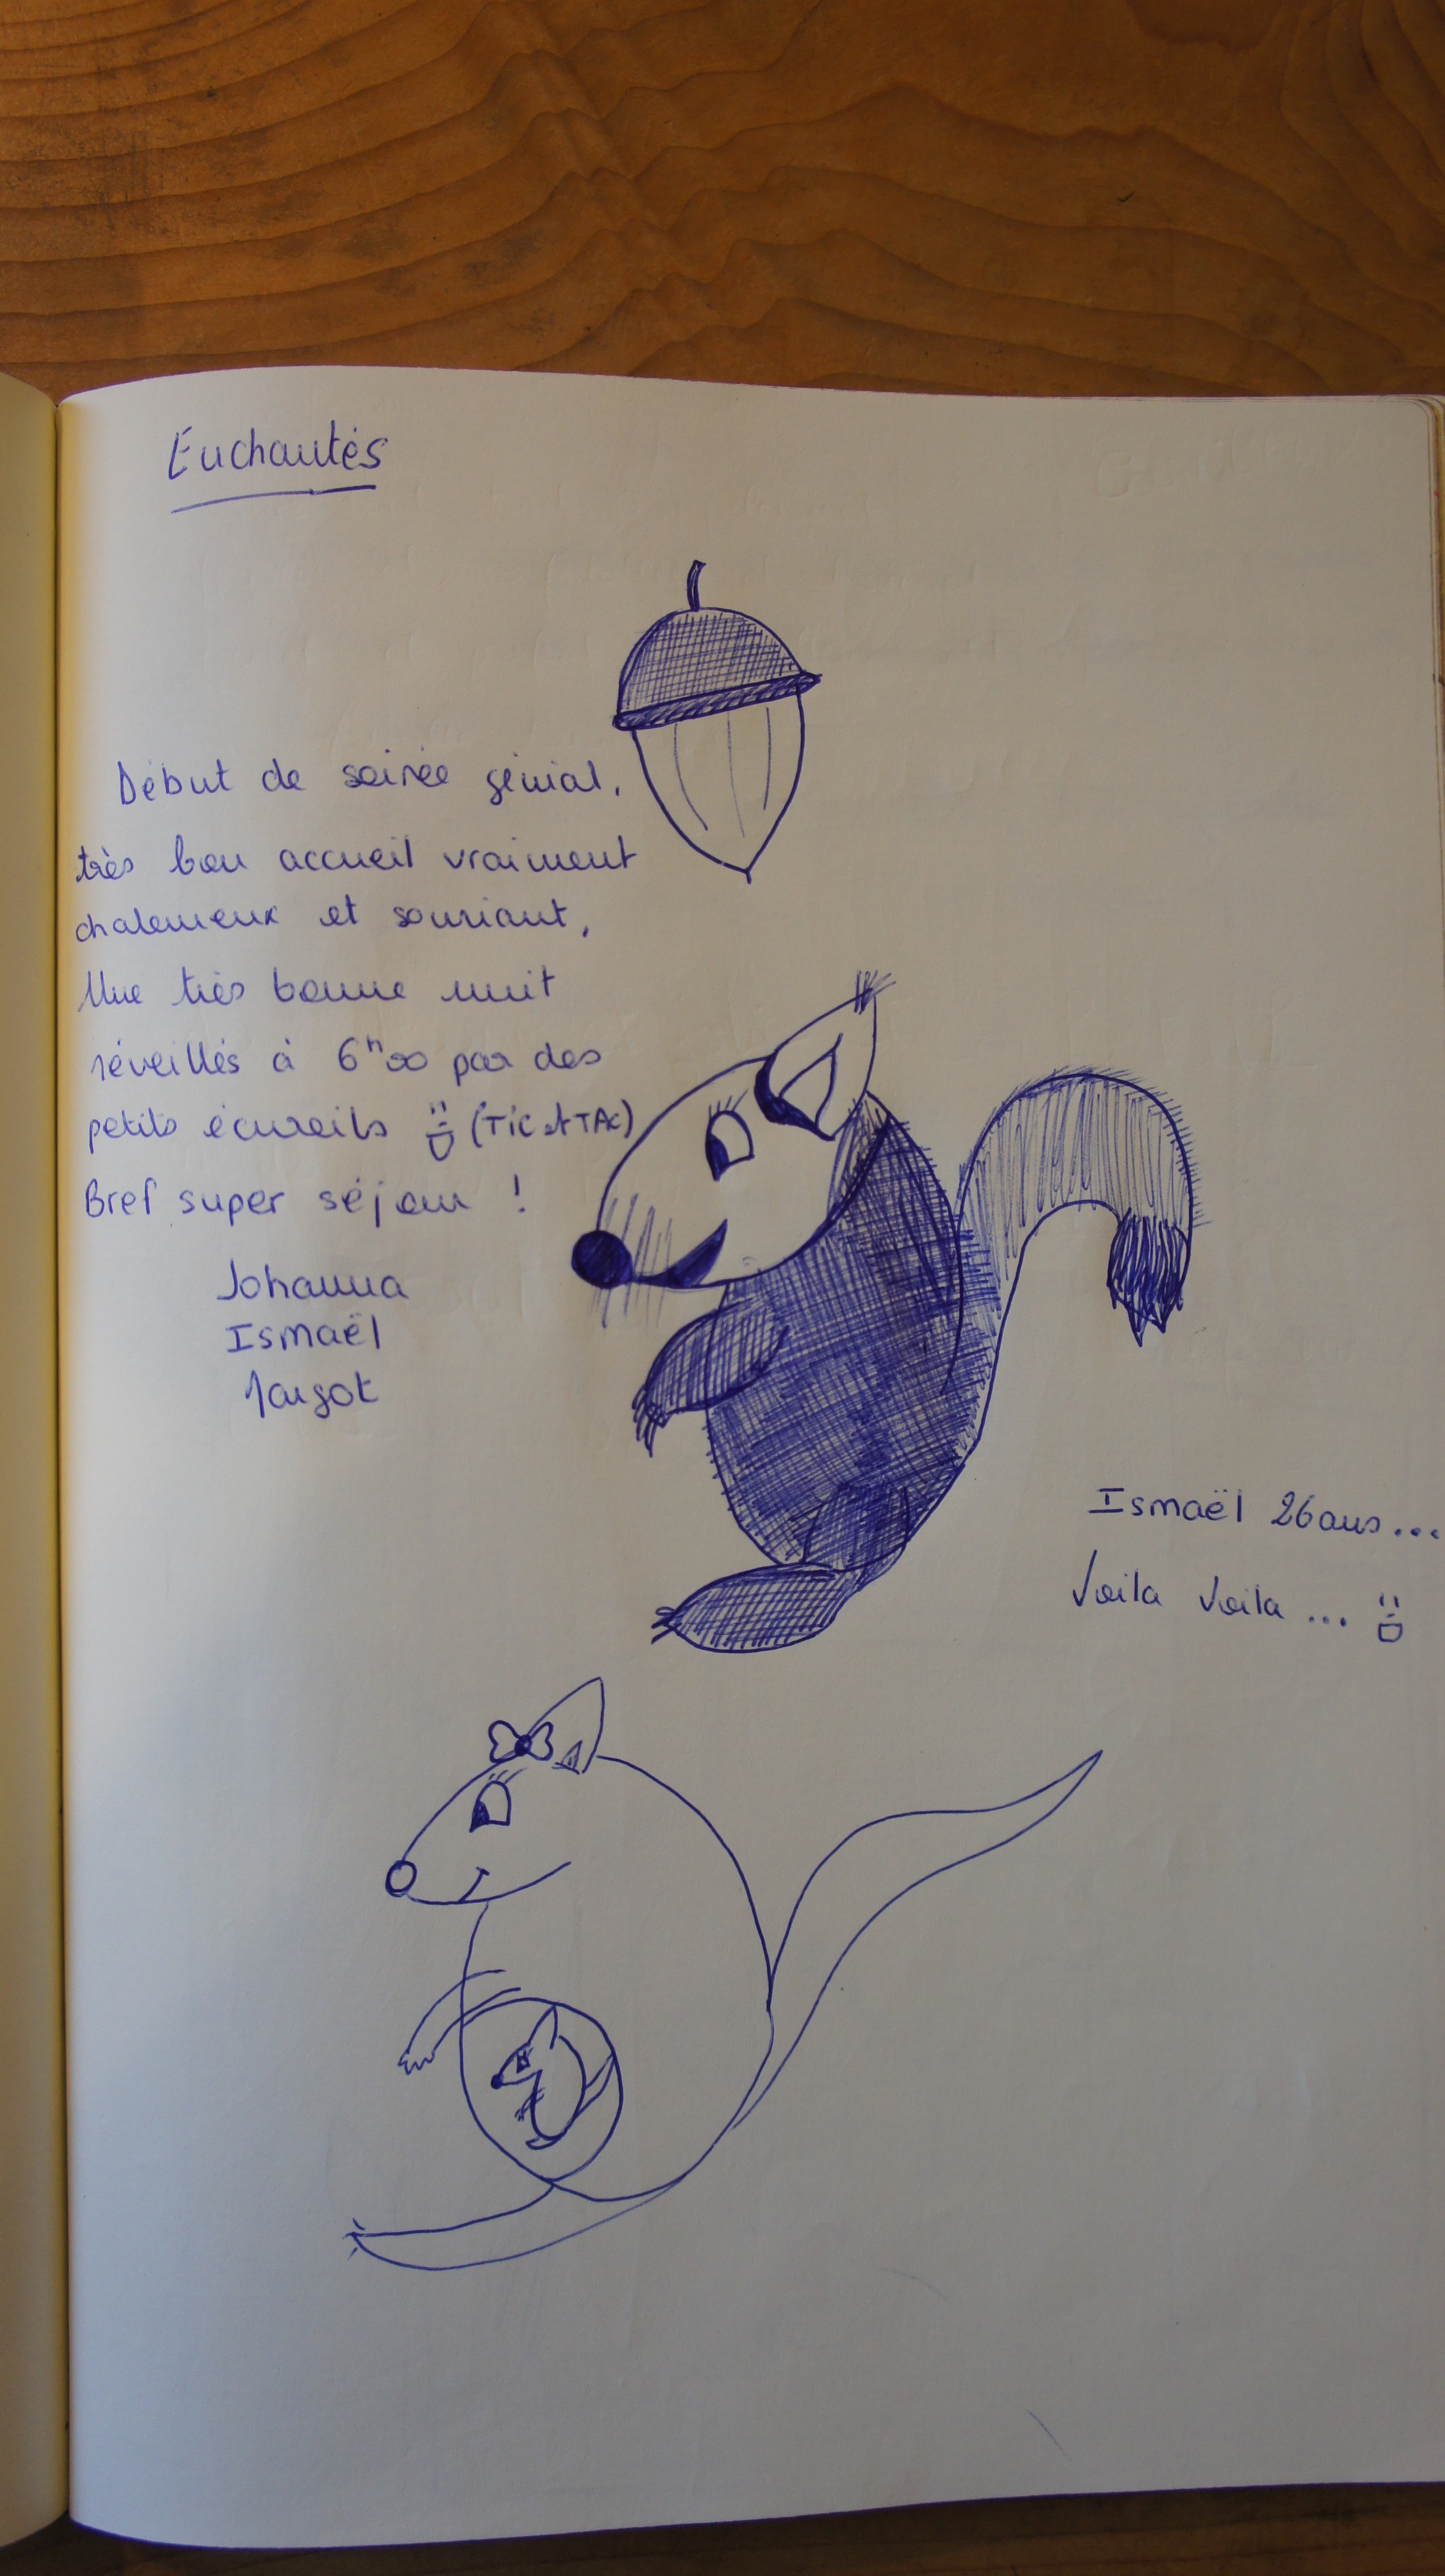 Enchantés
Début de soirée génial,
très bon accueil vraiment
chaleureux et souriant,
Une très bonne nuit
réveillés à 6h00 par des
petits écureils (TIC et TAC)
Bref super séjour !
Johanna
Ismaël
Margot
Ismaël 26 ans...
Voila Voila ...